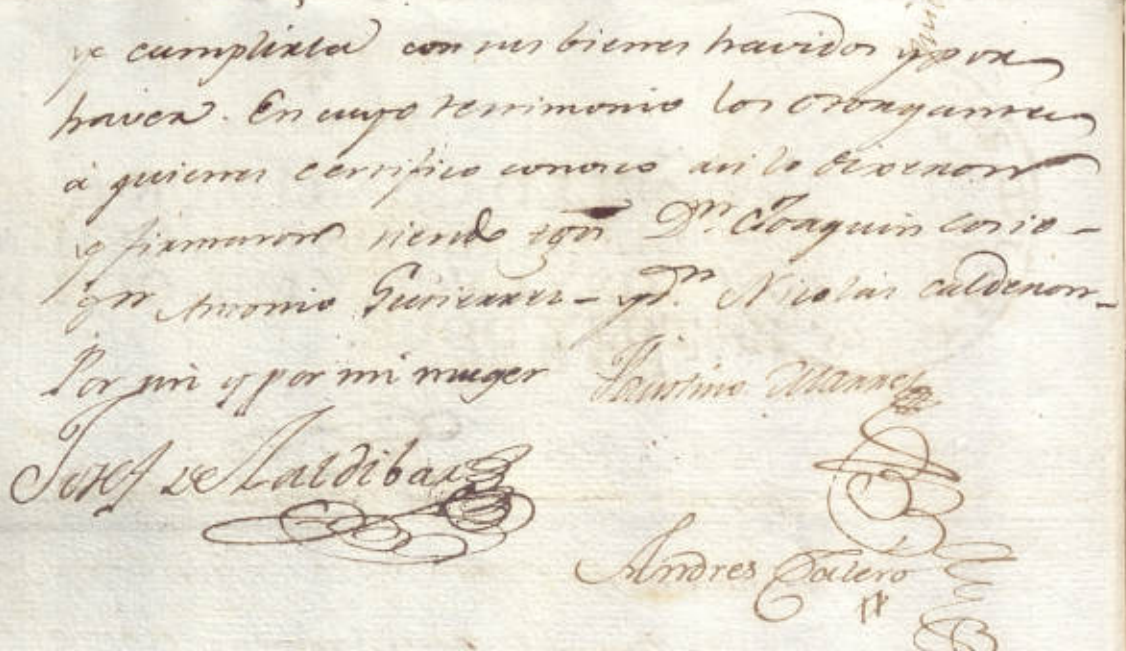 y cumplirla con sus bienes havidos y por
haver. En cuyo testimonio los otorgantes
à quienes certifico conosco asi lo dixeron
y firmaron siendo tgos Dn. Joaquin Cosio -
Dn Antonio Gutierrez - y dn. Nicolas Calderon -
Por mi y por mi muger
Faustino
Josef de Saldibar
Andres Calero